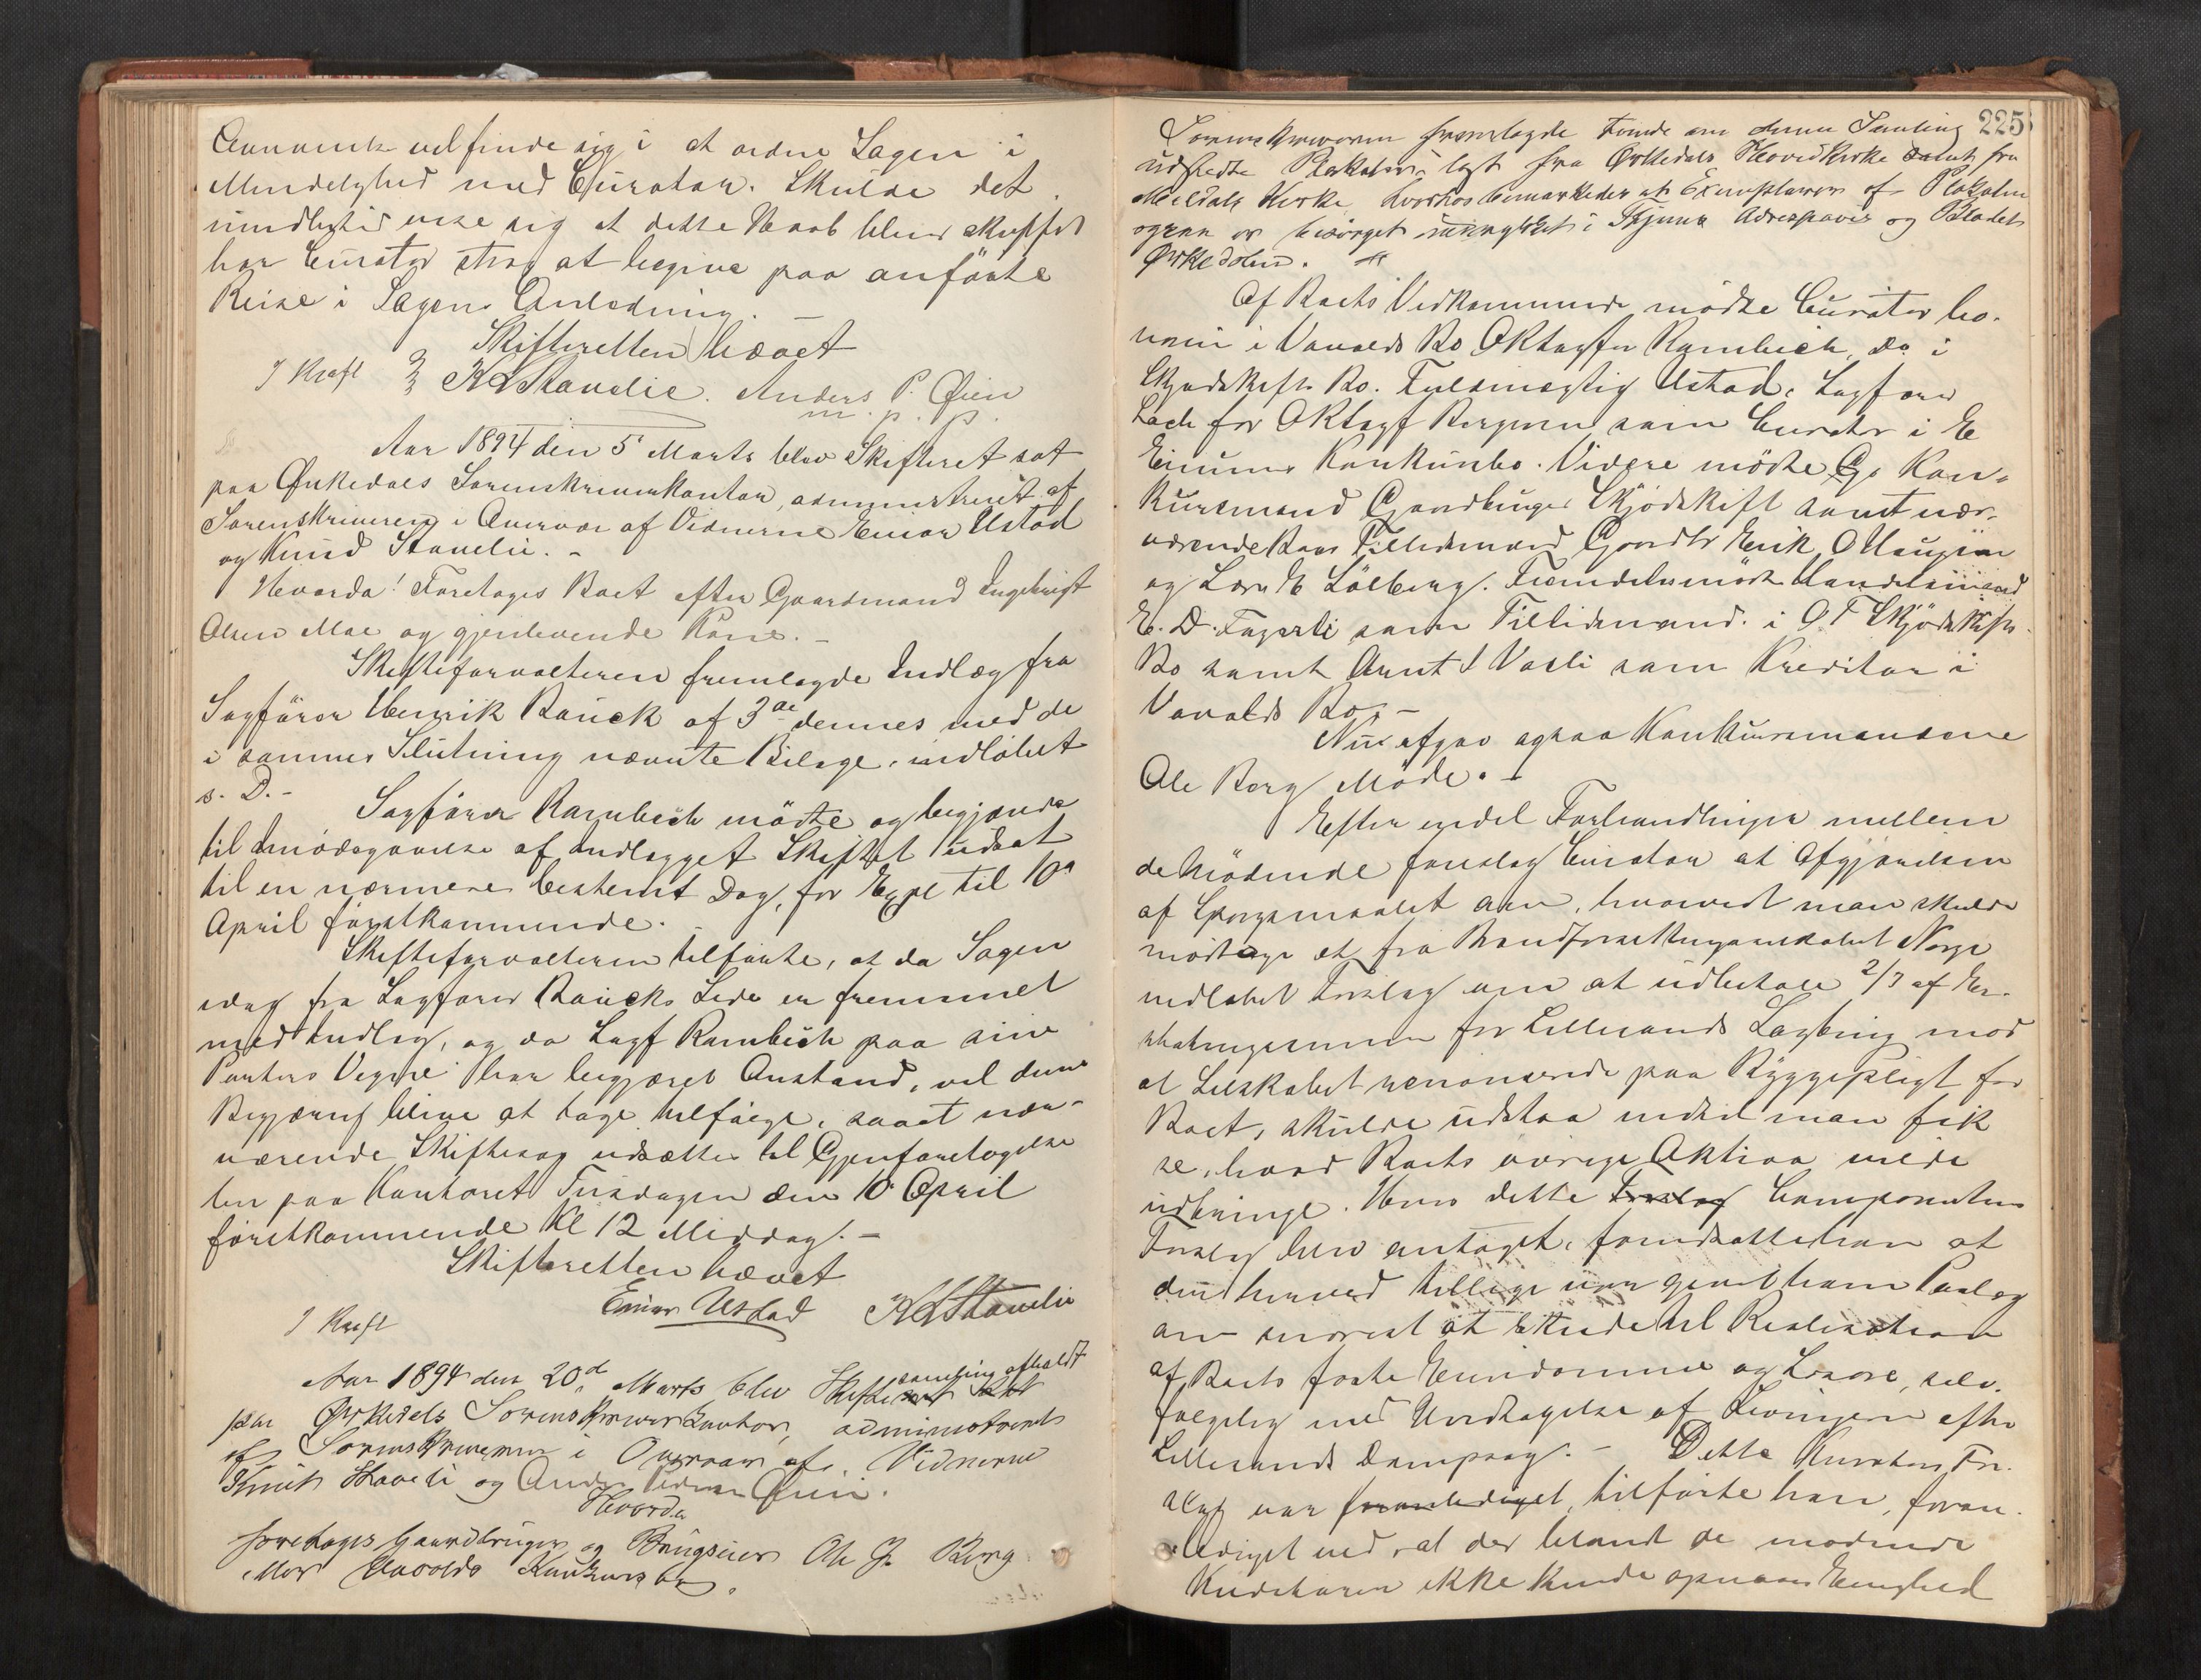 vil finde sig i at ordne Sagen i
Mindelighed med Curator. Skulde det
imidlertid vise sig at dette Haab bliver skuffet
har Curator strax at begive paa anførte
Reise i Sagens Anledning. —
Skifteretten hævet
I Kraft K L Stavelie. Anders P. Øien
m. p. p.
Aar 1894 den 5' Marts blev Skifteret sat
paa Ørkedals Sorenskriverkontor, administreret af
Sorenskriveren i Overvær af Vidnerne Einar Ustad
og Knud Stavelie. -
Hvorda! Foretages Boet efter Gaardmand Ingebrigt
Olsen Moe og gjenlevende Kone. -
Skifteforvalteren fremlagde Indlæg fra
Sagfører Henrik Bauck af 3de dennes med de
i sammes Slutning nævnte Bilage, indløbet
s. D. -
Sagfører Rambech mødte og begjærede
til Imødegaaelse af Indlægget Skiftet udsat
til en nærmere bestemt Dag, for Expl til 10'
April førstkommende.
Skifteforvalteren tilførte, at da Sagen
idag fra Sagfører Baucks Side er fremmet
med Indlæg, og da Sagf Rambech paa sine
Parters Vegne har begjæret Anstand, vil denne
Begjæring blive at tage tilfølge, saaat nær-
værende Skiftesag udsættes til Gjenforetagelse
her paa Kontoret Tirsdagen den 10' April
førstkommende Kl 12 Middag. -
Skifteretten hævet
I Kraft Einar Ustad K L Stavelie
Aar 1894 den 20d Marts blev Skiftesamling afholdt
paa Ørkedals Sorenskriverkontor, administreret
af Sorenskriveren i Overvær af Vidnerne
Knut Staveli og Anders Øien.
Hvorda
foretages Gaardbruger og Brugseier Ole J. Berg
Konkursbo.
225
Sorenskriveren fremlagde Funde om denne Samling
udstedte Plakater, læst fra Ørkedals Hovedkirke samt fra
Meldals Kirke, hvorhos bemærkedes at Exemplarer af Plakaten
ogsaa er besørget indrykket i Trhjems Adresseavis og Bladet
Ørkedølen.
Af Boets Vedkommende mødte Curator bo-
norum i Vavolds Bo ORsagfør Rambech, Do i
Skjødskifts Bo. Fuldmægtig Ustad, Sagfører
Lach for ORsagf Borgersen som Curator i E
Konkursbo. Videre mødte Kon-
kursmand Gaardbruger Skjødskift samt nær-
værende Boes Tillidsmænd Gaardbr Erik O Haugen
og Lars E Sølberg. Fremdeles mødte Handelsmand
E. D. Fagerli som Tillidsmand i O T Skjødskifts
Bo samt Arnt J Vasli som Kreditor i
Vavolds Bo, -
Nu afgav ogsaa Konkursmanden
Ole Berg Møde. -
Efter endel Forhandlinger mellem
de Mødende foreslog Curator at Afgjørelsen
af Spørgsmaalet om, hvorvidt man skulde
modtage et fra Brandforsikringsselskabet Norge
indløbet Forslag om at udbetale 2/3 af Er-
statningssummen for Lillesands Sagbrug mod
at Selskabet renoncerede paa Byggepligt for
Boet, skulde udstaa indtil man fik
se, hvad Boets øvrige Aktiva vilde
indbringe. Hvis dette Forslag Comparentens
Forslag blev antaget, forudsatte han at
der herved tillige var givet ham Paalæg
om snarest at skride til Realisation
af Boets faste Eiendomme og Løsøre, selv-
følgelig med Undtagelse af Levningen efter
Lillesands Dampsag. - Dette Kurators For-
slag var foranlediget, tilførte han, foran-
lediget ved, at der blandt de mødende
Kreditorer ikke kunde opnaaes Enighed